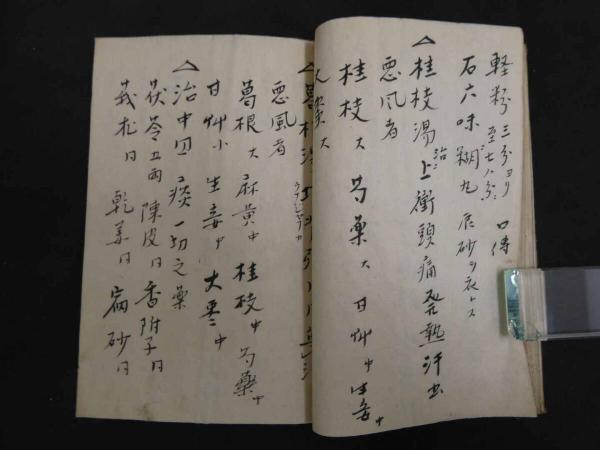 軽粉 三分ヨリ 至七八分 口傳
石六味糊丸 辰砂ヲ衣トス
△桂枝湯 治上衝頭痛発熱汗出
悪風者
桂枝大 芍薬大 甘艸中 生姜中
大棗大
悪風者
葛根大 麻黄中 桂枝中 芍薬中
甘艸小 生姜中 大棗中
△治中四痰一切之薬
茯苓五両 陳皮日 香附子日
莪朮日 乾姜日 砂日